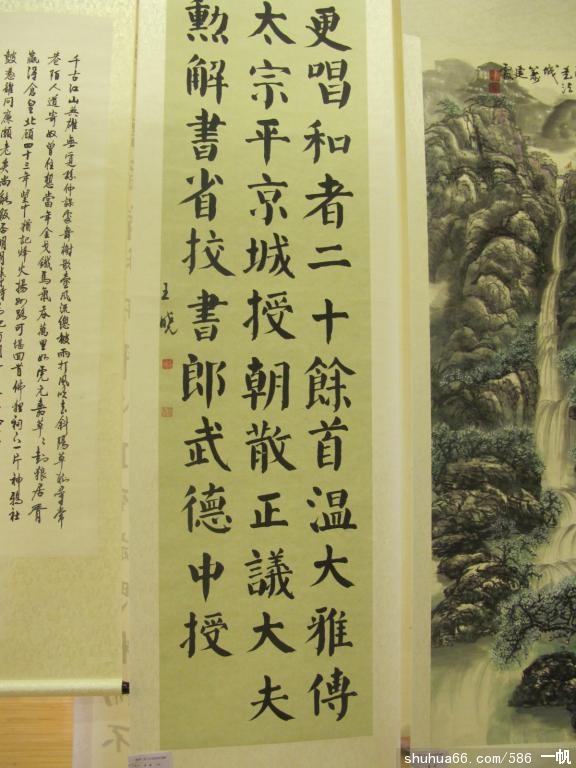 更唱和者二十餘首温大雅傳
太宗平京城授朝散正議大夫
勲解書省挍書郎武德中授
王晓
千古江山英雄無覓孫仲謀處舞榭歌臺風流總被雨打風吹去斜陽草樹尋常
巷陌人道寄奴曾住想當年金戈鐵馬氣吞萬里如虎元嘉草々封狼居胥
贏得倉皇北顧四十三年望中猶記烽火揚州路可堪回首佛狸祠下一片神鴉社
鼓憑誰問廉頗老矣尚能飯否
shuhua66.com/586 一帆